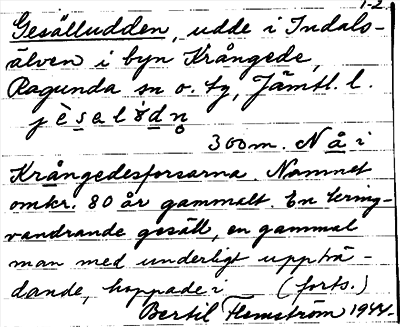 1-2
Gesälludden, udde i Indals-
älven i byn Krångede,
Ragunda sn o. tg, Jämtl. l.
jèsalúdn̥
300 m. N å i
Krångedesforsarna. Namnet
omkr. 80 år gammalt. En kring-
vandrande gesäll, en gammal
man med underligt uppträ-
dande, hoppade i (forts.)
Bertil Flemström 1944.